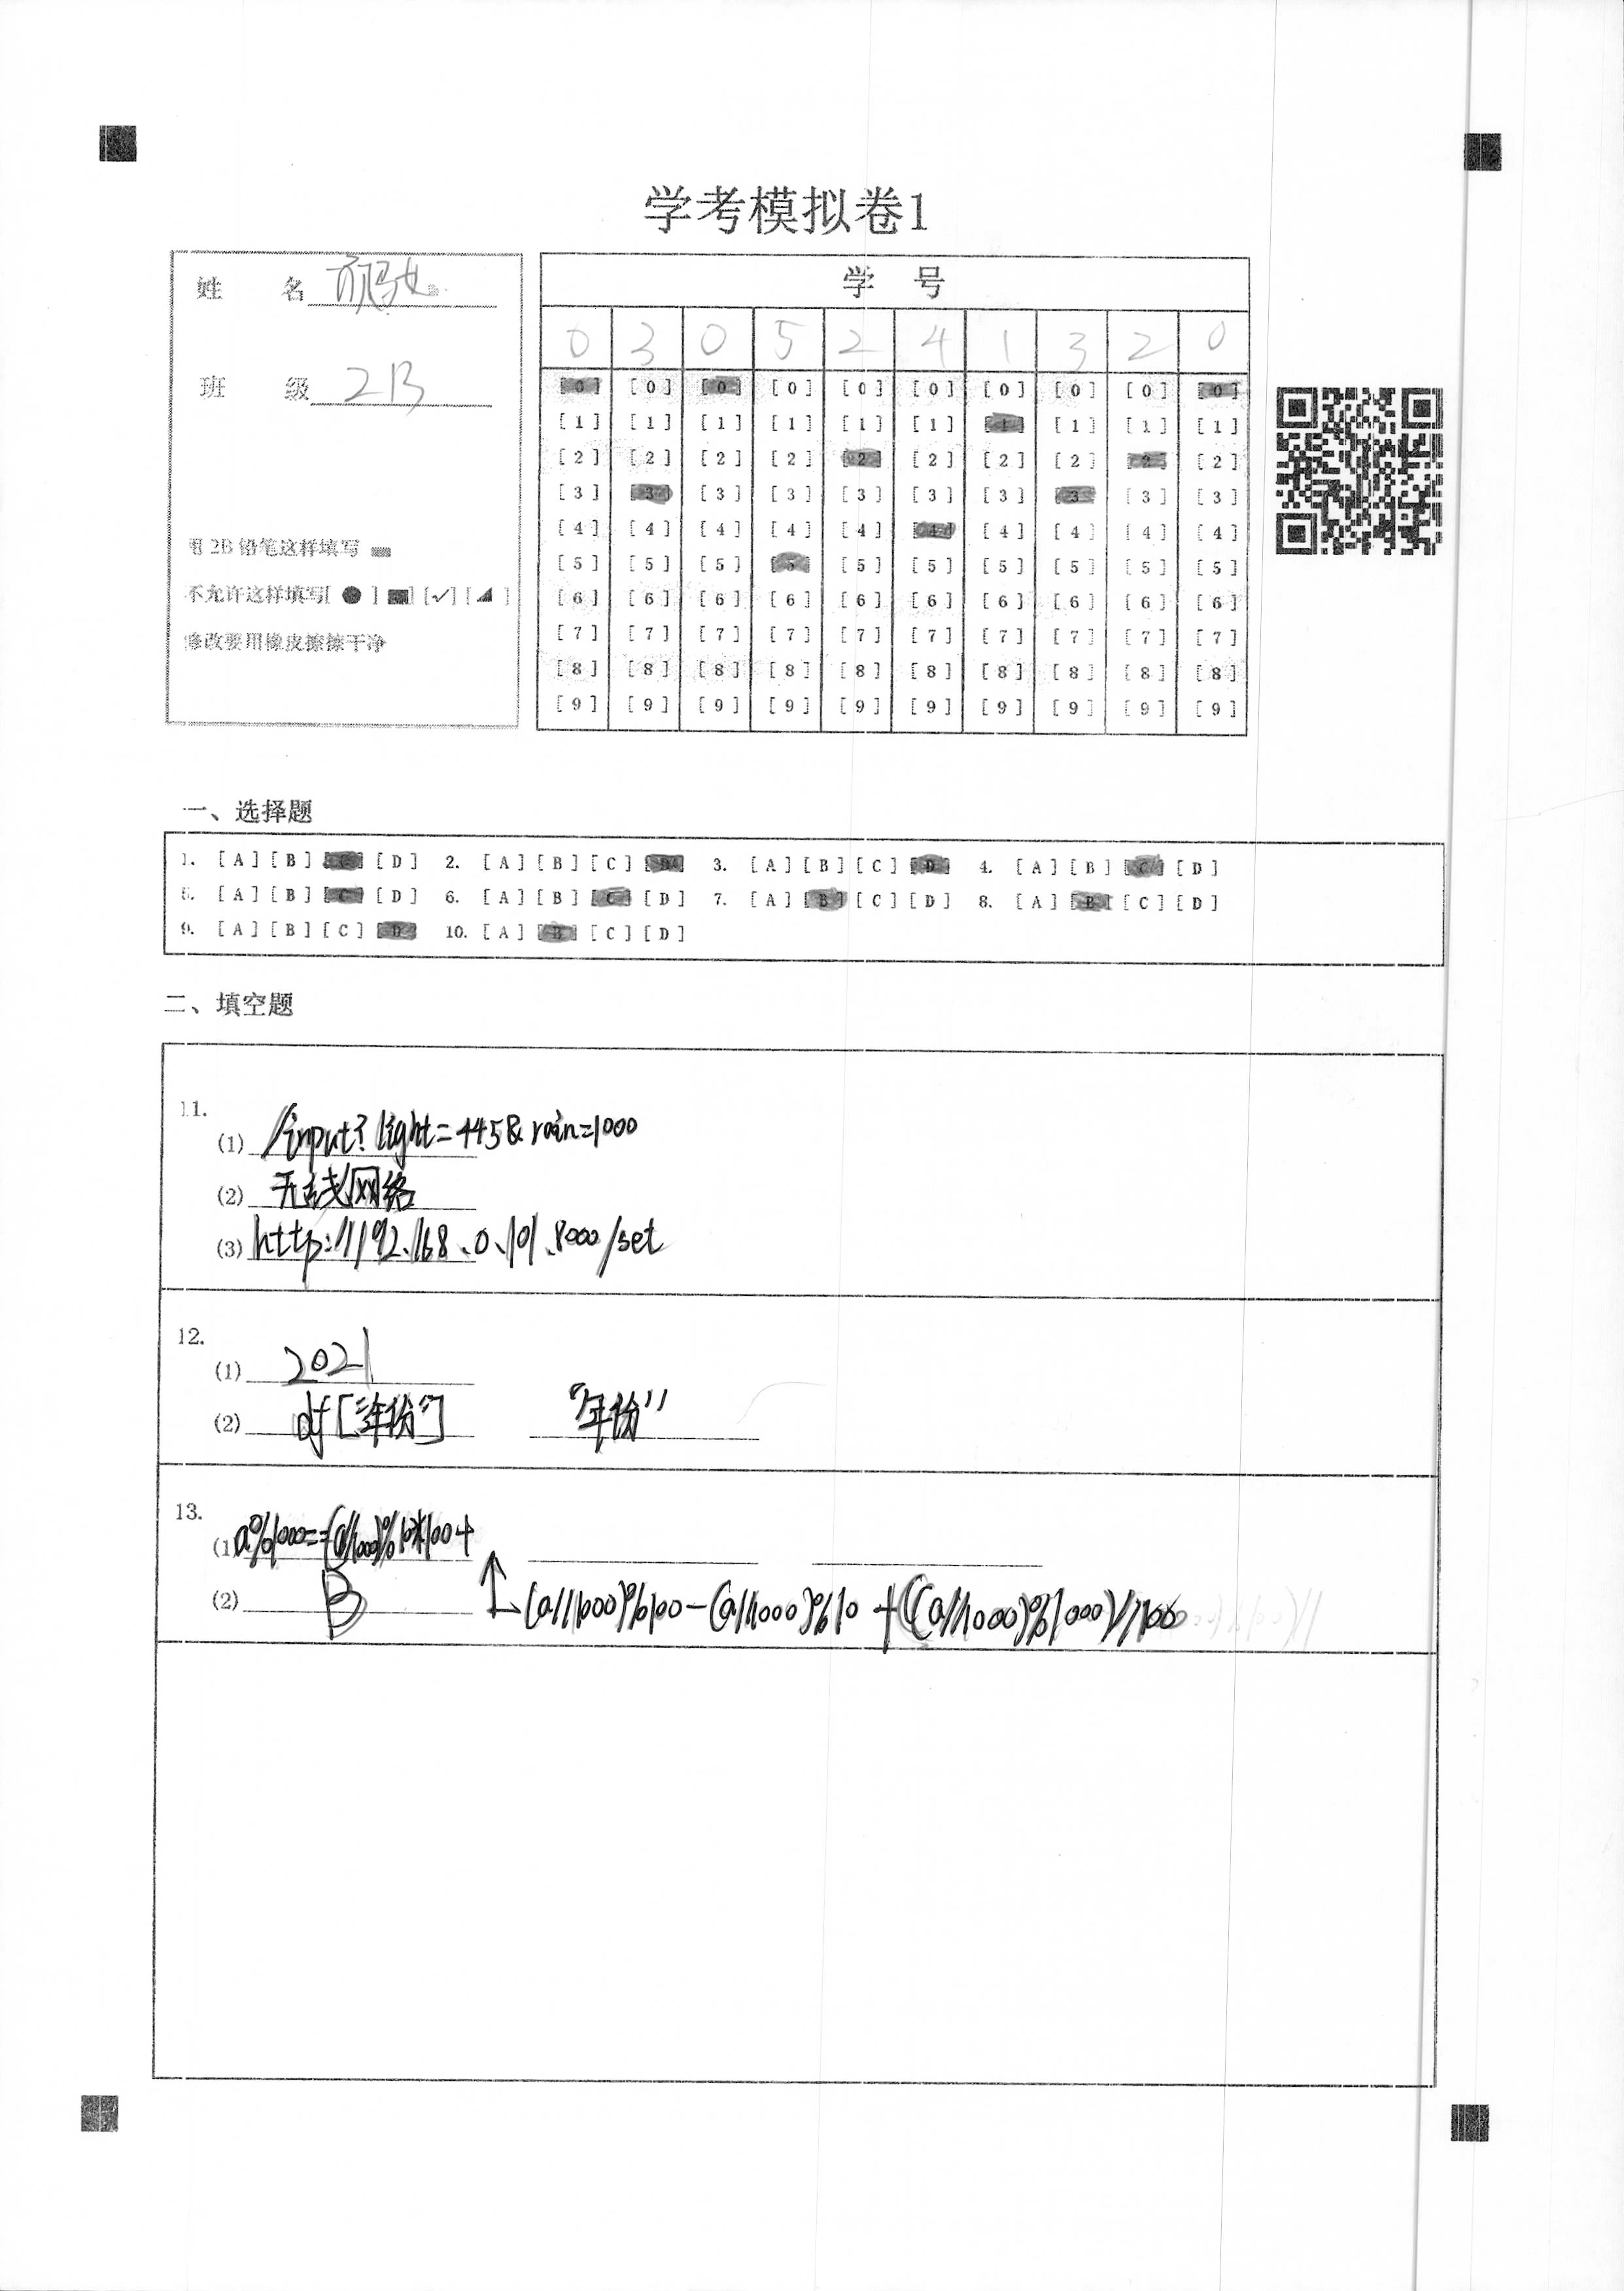 学考模拟卷1
姓 名
班 级 2B
用2B铅笔这样填写
不允许这样填写[ ● ] [✓] [ ]
修改要用橡皮擦擦干净
学 号
0 3 0 5 2 4 1 3 2 0
[0] [0] [0] [0] [0] [0] [0] [0] [0] [0]
[1] [1] [1] [1] [1] [1] [1] [1] [1] [1]
[2] [2] [2] [2] [2] [2] [2] [2] [2] [2]
[3] [3] [3] [3] [3] [3] [3] [3] [3] [3]
[4] [4] [4] [4] [4] [4] [4] [4] [4] [4]
[5] [5] [5] [5] [5] [5] [5] [5] [5] [5]
[6] [6] [6] [6] [6] [6] [6] [6] [6] [6]
[7] [7] [7] [7] [7] [7] [7] [7] [7] [7]
[8] [8] [8] [8] [8] [8] [8] [8] [8] [8]
[9] [9] [9] [9] [9] [9] [9] [9] [9] [9]
一、选择题
1. [A] [B] [C] [D] 2. [A] [B] [C] [D] 3. [A] [B] [C] [D] 4. [A] [B] [C] [D]
5. [A] [B] [C] [D] 6. [A] [B] [C] [D] 7. [A] [B] [C] [D] 8. [A] [B] [C] [D]
9. [A] [B] [C] [D] 10. [A] [B] [C] [D]
二、填空题
11.
(1) /input?light=445&rain=1000
(2) 无线网络
(3) http://192.168.0.101.8000/set
12.
(1) 2021
(2) df["年份"] "年份"
13.
(1) a%1000==(a//1000)%10*100+
(2) B (a//1000)%100-(a//1000)%10+((a//1000)%1000)//100